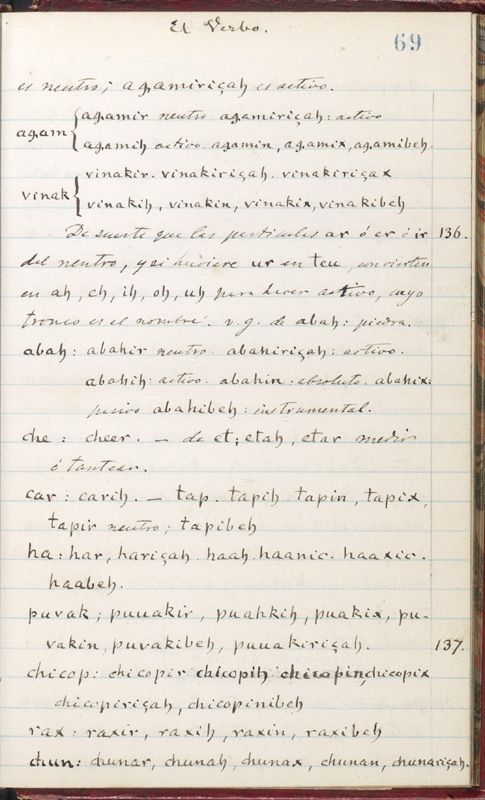 El Verbo.
69
es neutro; agamiriçah es activo.
agam { agamir neutro agamiriçah: activo
agamih activo. agamin, agamix, agamibeh.
vinak { vinakir. vinakiriçah. vinakiriçax
vinakih, vinakin, vinakix, vinakibeh
De suerte que las particulas ar ó er ó ir 136.
del neutro, y si huviere ur en teu, convierten
en ah, eh, ih, oh, uh para hacer activo, cuyo
tronco es el nombre. v. g. de abah: piedra.
abah: abahir neutro. abahiriçah: activo.
abahih: activo. abahin: absoluto. abahix:
pasivo abahibeh: instrumental.
che: cheer. — de et; etah, etar medir
ó tantear.
car: carih. — tap. tapih tapin, tapix,
tapir neutro; tapibeh
ha: har, hariçah. haah. haanic. haaxic.
haabeh.
puvak; puuakir, puahkih, puakix, pu-
vakin, puvakibeh, puuakiriçah. 137.
chicop: chicopir chicopih chicopin, chicopix
chicopiriçah, chicopinibeh
rax: raxir, raxih, raxin, raxibeh
chun: chunar, chunah, chunax, chunan, chunariçah.